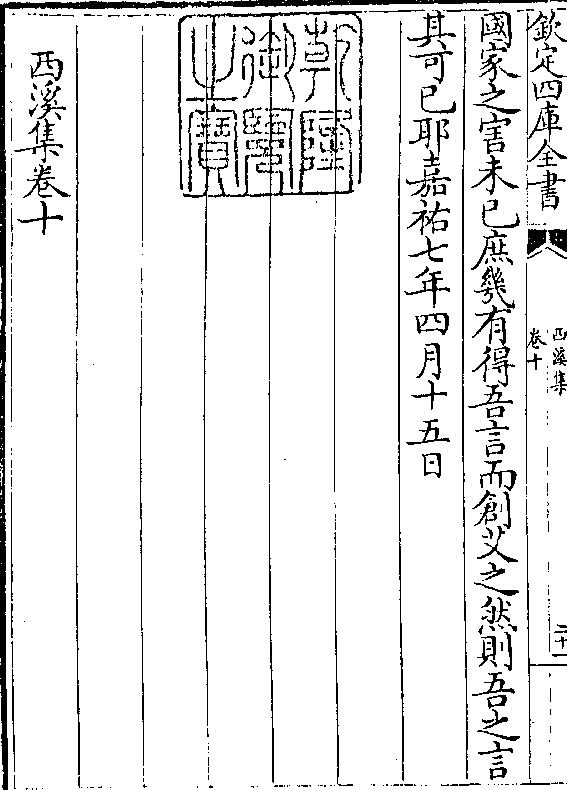 欽定四庫全書
西溪集
卷十
二十一
國家之害未已庶幾有得吾言而創艾之然則吾之言
其可已耶嘉祐七年四月十五日
乾隆
御覽
之寶
西溪集卷十